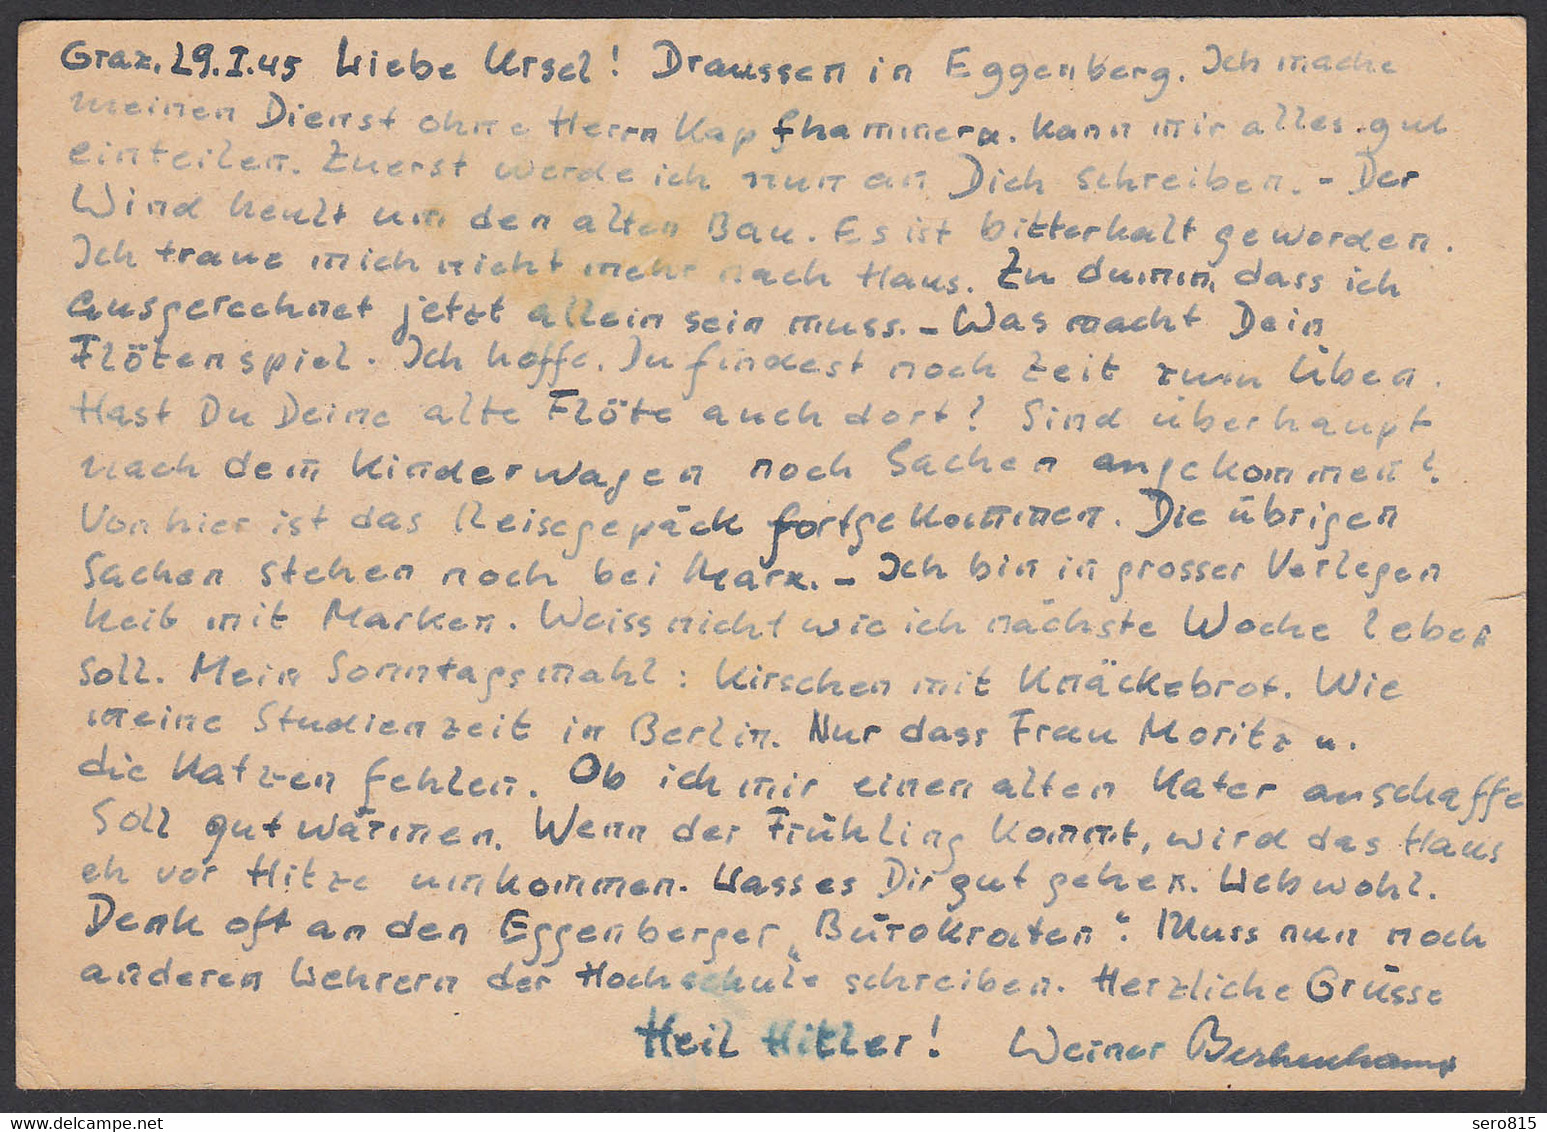 Graz. 29.I.45 Liebe Ursel! Draussen in Eggenberg. Ich mache
meinen Dienst ohne Herrn Kapfhammer. Kann mir alles gut
einteilen. Zuerst werde ich nun an Dich schreiben. - Der
Wind heult um den alten Bau. Es ist bitterkalt geworden.
Ich traue mich nicht mehr nach Haus. Zu dumm, dass ich
ausgerechnet jetzt allein sein muss. - Was macht Dein
Flötenspiel. Ich hoffe, Du findest noch Zeit zum Üben.
Hast Du Deine alte Flöte auch dort? Sind überhaupt
nach dem Kinderwagen noch Sachen angekommen?
Von hier ist das Reisegepäck fortgekommen. Die übrigen
Sachen stehen noch bei Marx. - Ich bin in grosser Verlegen
heit mit Marken. Weiss nicht wie ich nächste Woche leben
soll. Mein Sonntagsmahl: Kirschen mit Knäckebrot. Wie
meine Studienzeit in Berlin. Nur dass Frau Moritz u.
die Katzen fehlen. Ob ich mir einen alten Kater anschaffe
Soll gut wärmen. Wenn der Frühling kommt, wird das Haus
eh vor Hitze umkommen. Lass es Dir gut gehen. Lebwohl.
Denk oft an den Eggenberger „Bürokraten". Muss nun noch
anderen Lehrern der Hochschule schreiben. Herzliche Grüsse
Heil Hitler! Werner
sero815